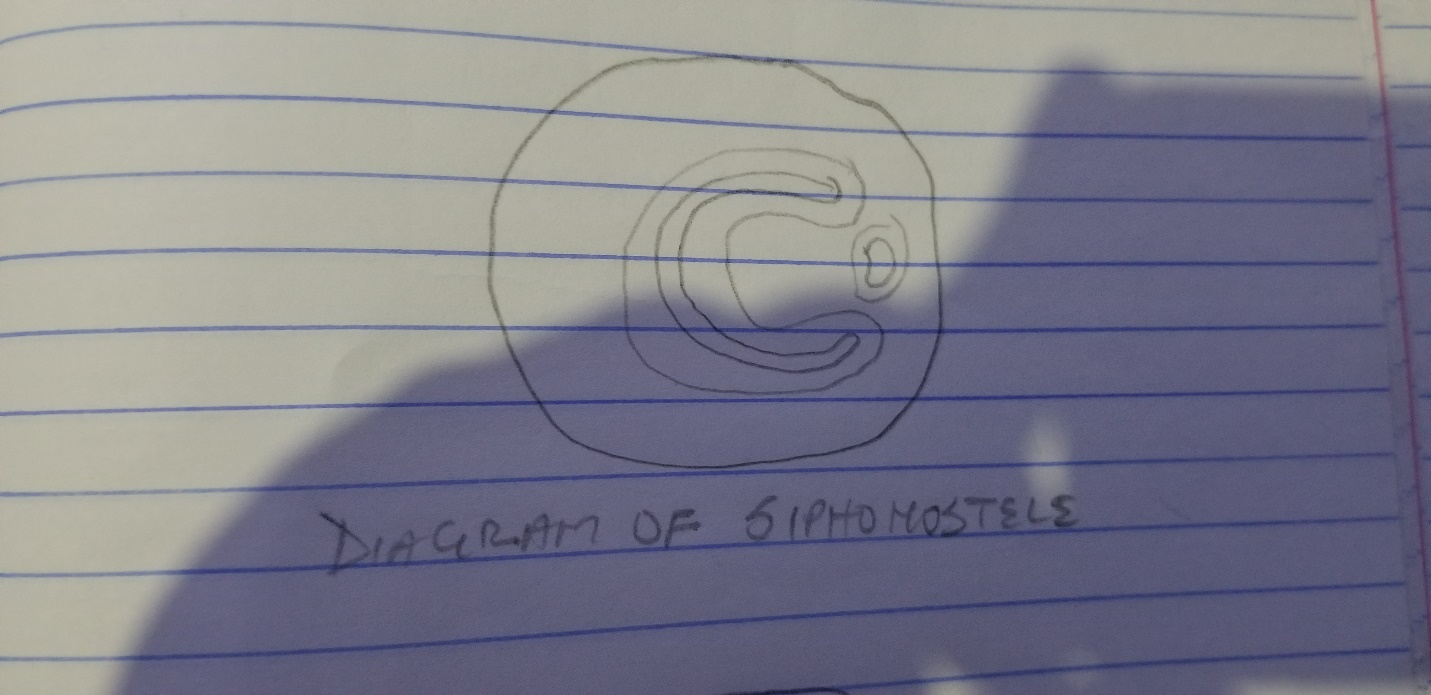 DIAGRAM OF SIPHONOSTELE